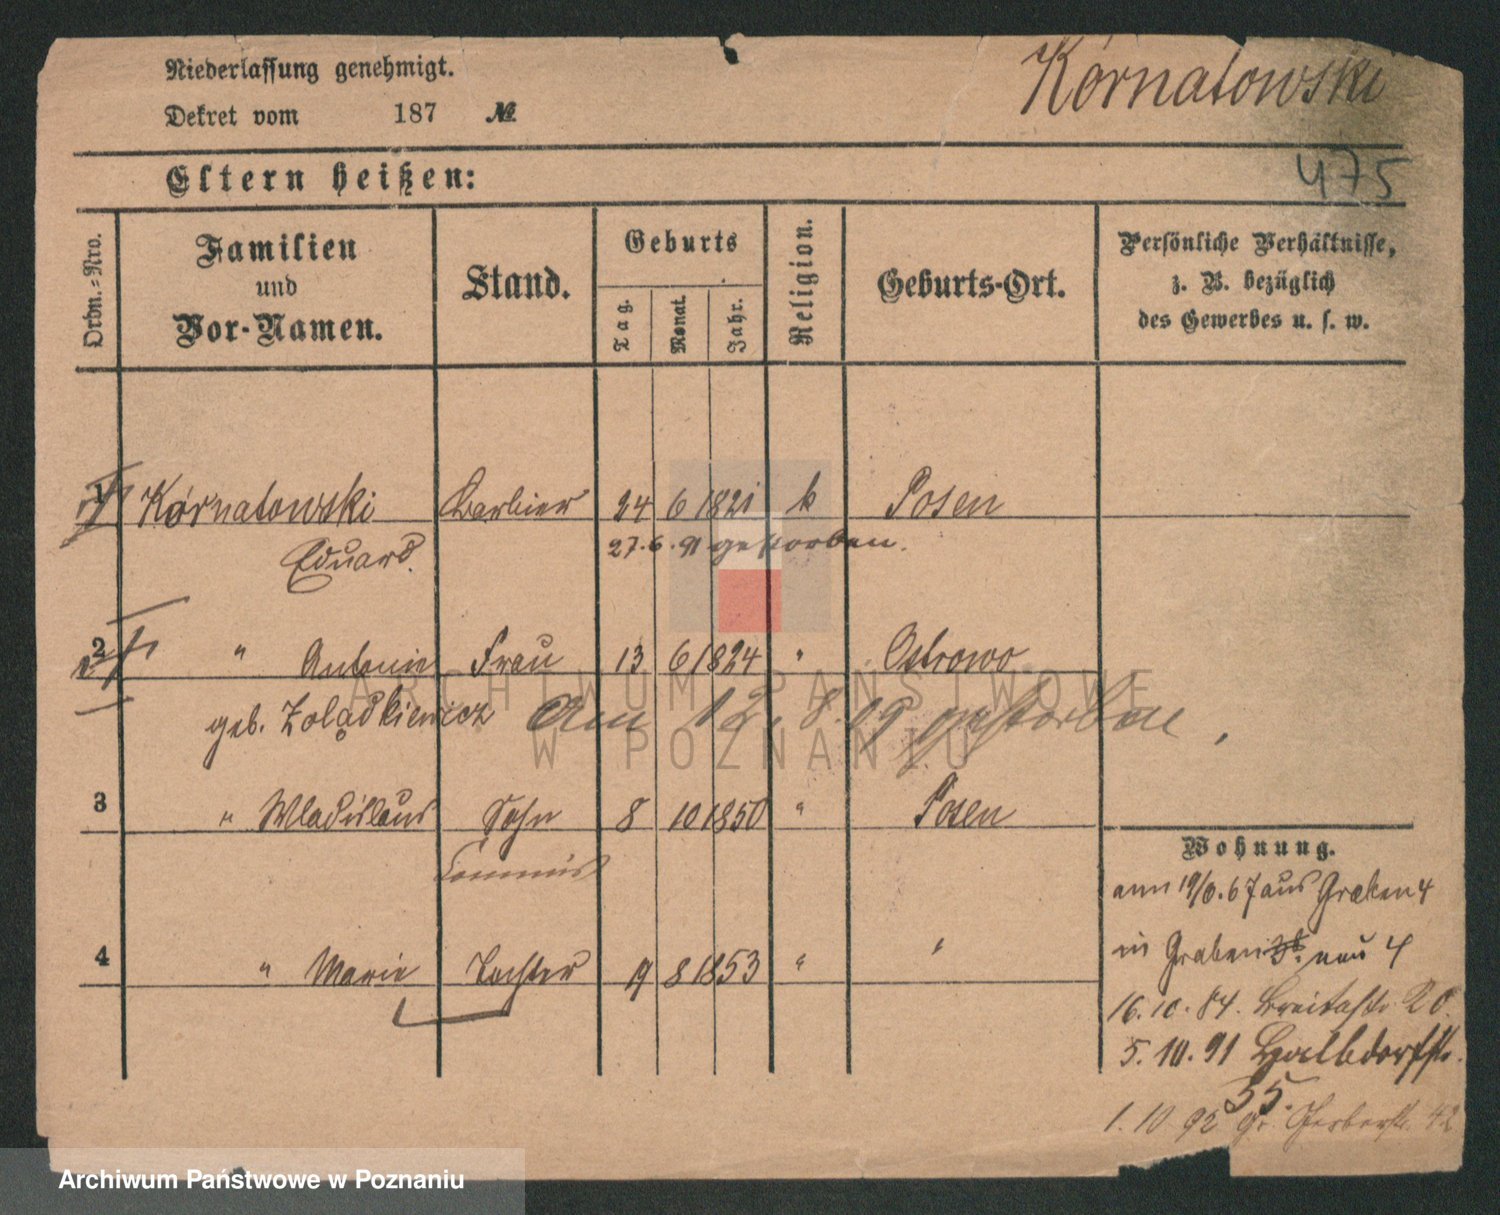 Niederlassung genehmigt.
Dekret vom 187 №
Kornatowski
475
Eltern heißen:
Ordn.-Nro.
Familien
und
Vor-Namen.
Stand.
Geburts
Tag.
Monat.
Jahr.
Religion.
Geburts-Ort.
Persönliche Verhältnisse,
z. B. bezüglich
des Gewerbes u. s. w.
1 Kornatowski Barbier 24 6 1821 k Posen
Eduard. 27.6.91 gestorben.
2 " Antonie Frau 13 6 1824 " Ostrowo
geb. Żolądkiewicz Am 12. 8. 09 gestorben.
3 " Wladislaus Sohn 8 10 1850 " Posen
Commis
4 " Marie Tochter 19 8 1853 " "
Wohnung.
aus Graben 4
in Graben neu 4
16.10.84. Breitestr. 20.
5.10.91 Halbdorfstr.
35.
1.10.92 Gr. Gerberstr. 42
ARCHIWUM PAŃSTWOWE
W POZNANIU
Archiwum Państwowe w Poznaniu